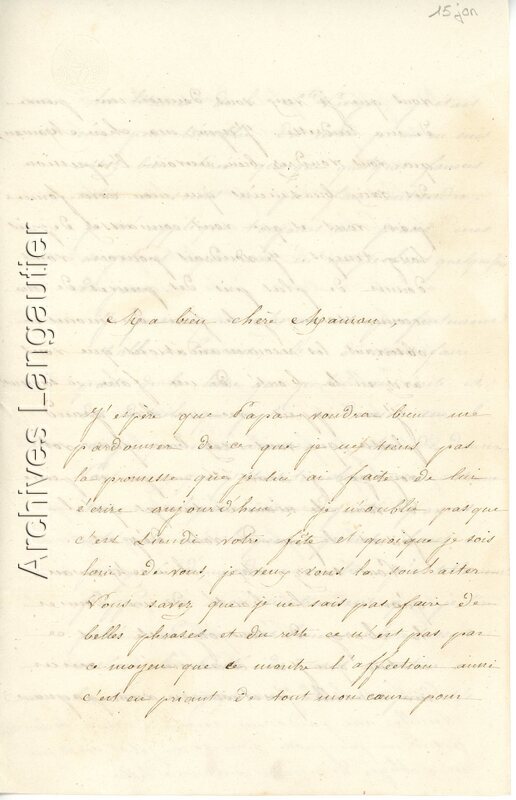 15 jan
Archives Langautier
Ma bien chère Maman,
J'espère que Papa voudra bien me
pardonner de ce que je ne tiens pas
la promesse que je lui ai faite de lui
écrire aujourd'hui je n'oublie pas que
c'est Lundi votre fête et quoique je sois
loin de vous, je veux vous la souhaiter
Vous savez que je ne sais pas faire de
belles phrases et du reste ce n'est pas par
ce moyen que se montre l'affection aussi
c'est en priant de tout mon cœur pour